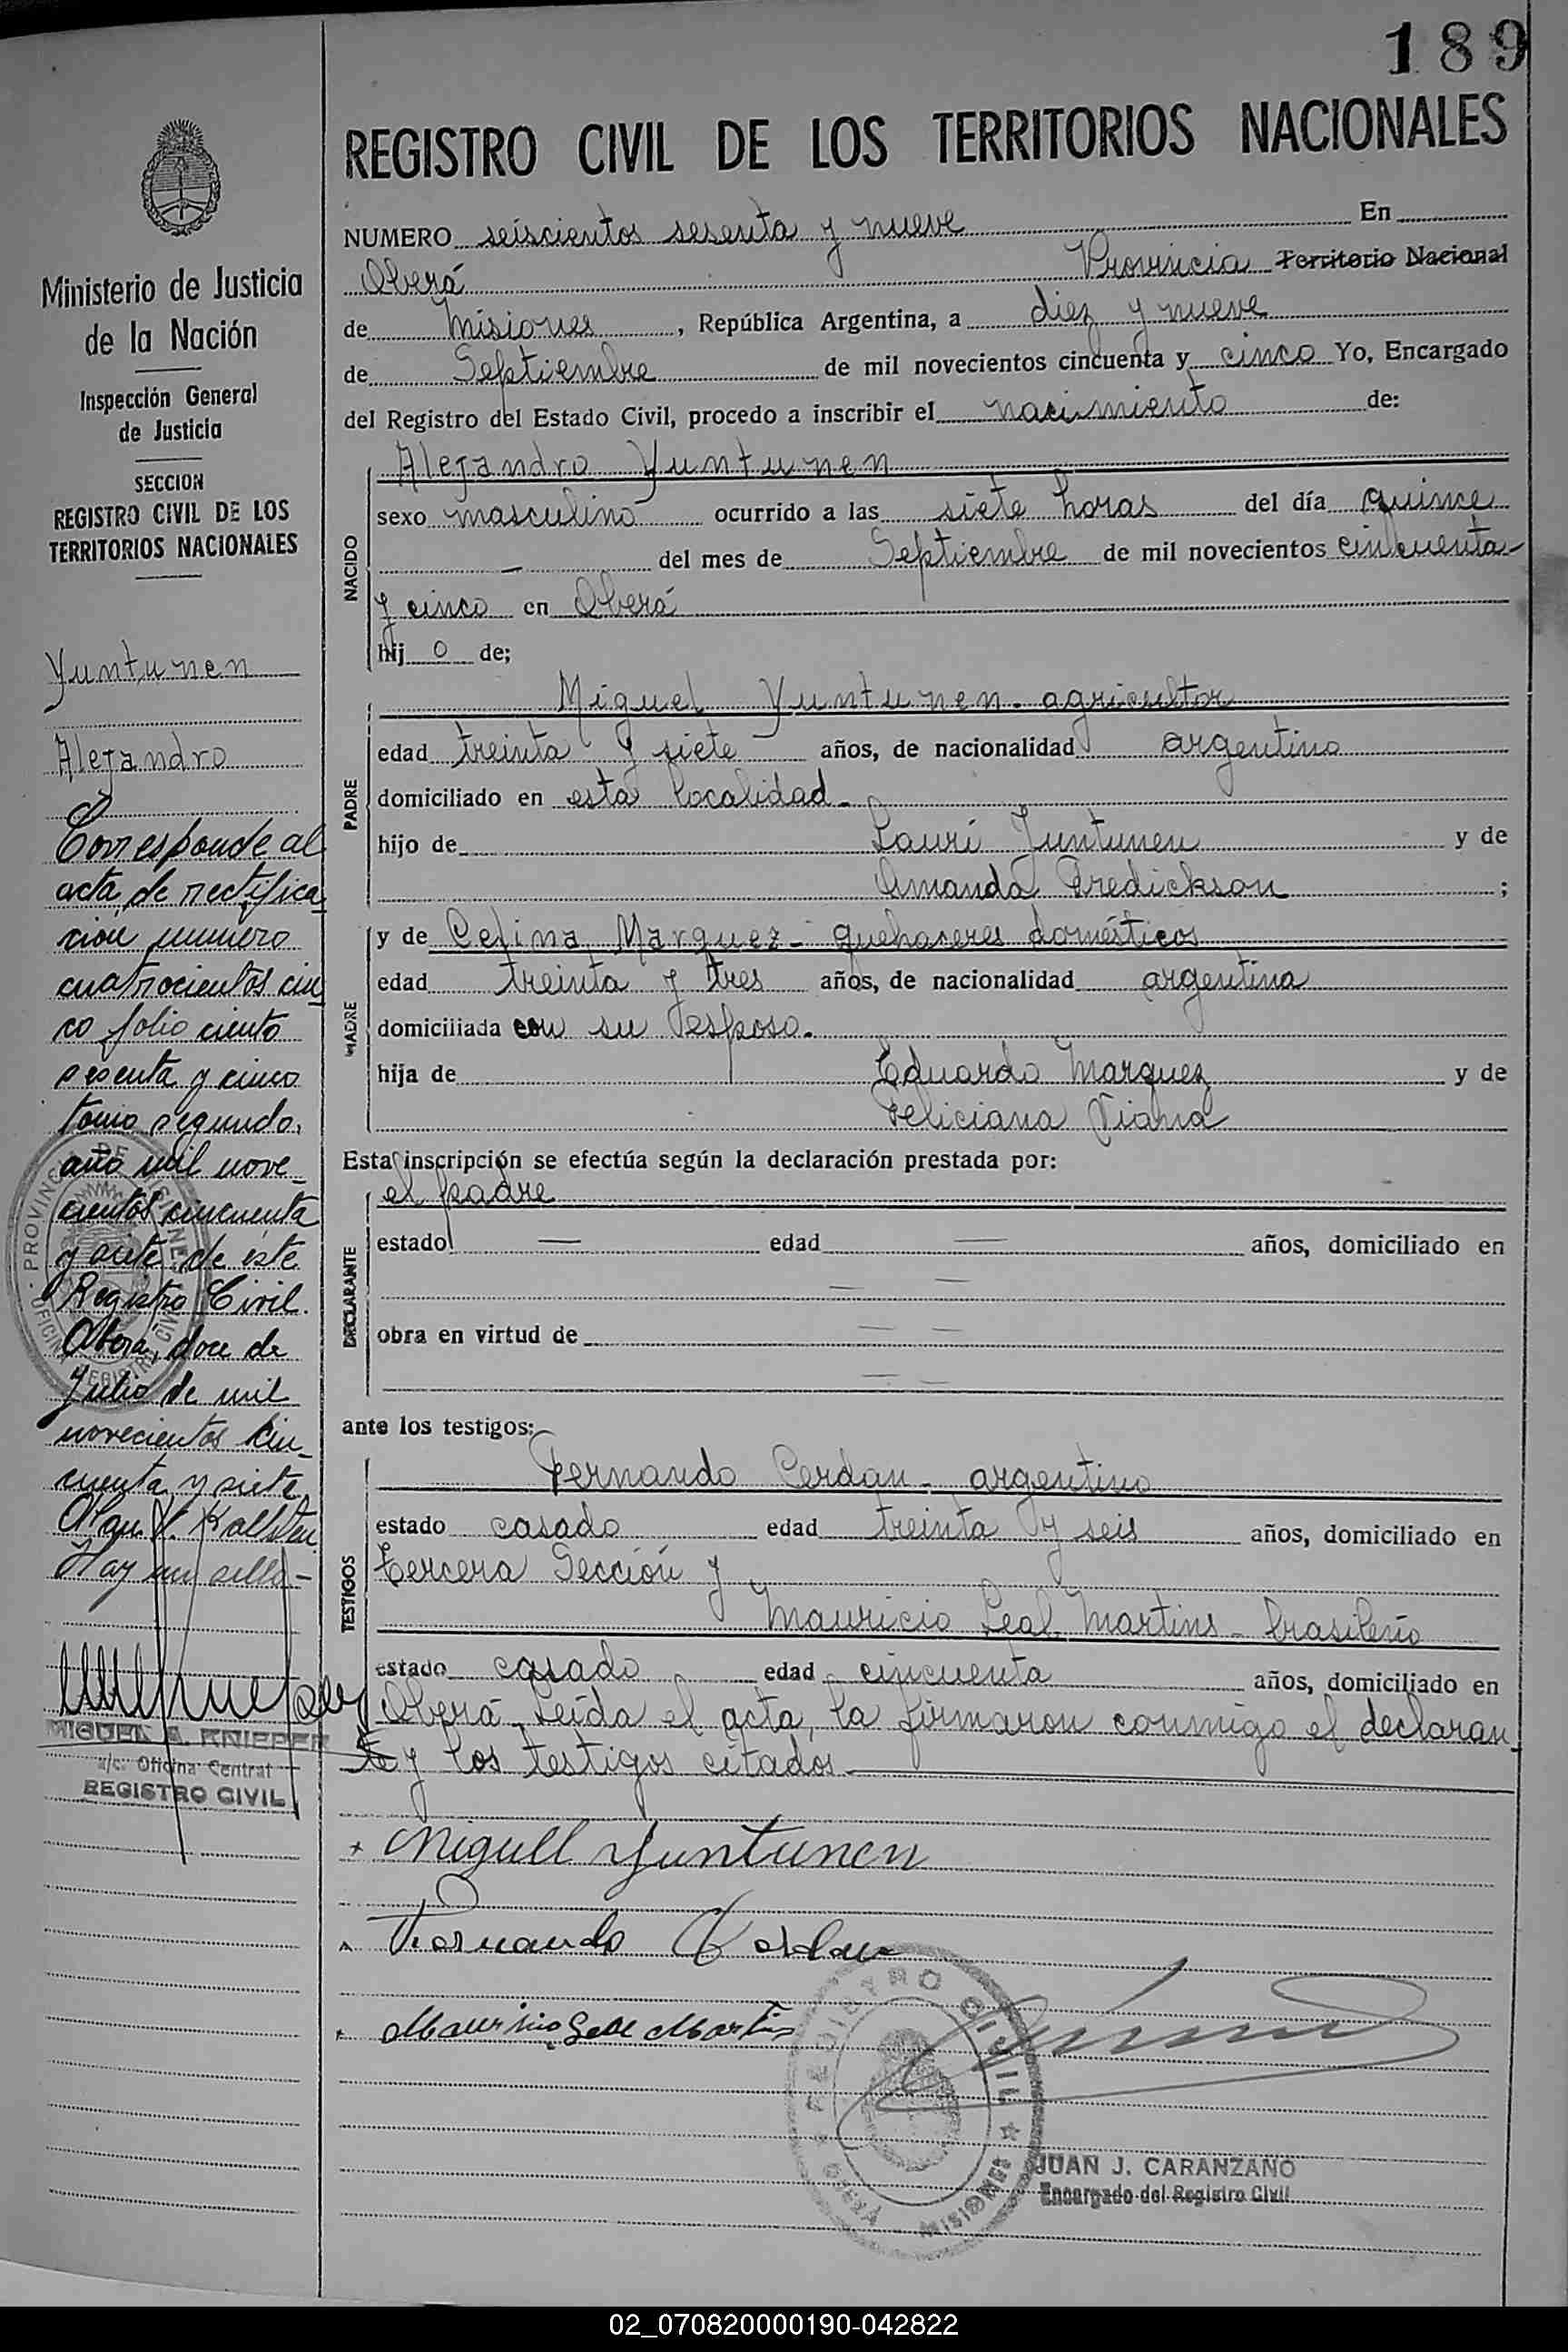 189
REGISTRO CIVIL DE LOS TERRITORIOS NACIONALES
NUMERO seiscientos sesenta y nueve En
Oberá Provincia Territorio Nacional
de Misiones, República Argentina, a diez y nueve
de Septiembre de mil novecientos cincuenta y cinco Yo, Encargado
del Registro del Estado Civil, procedo a inscribir el nacimiento de:
NACIDO
Alejandro Yuntunen
sexo masculino ocurrido a las siete horas del día quince
— del mes de Septiembre de mil novecientos cincuenta
y cinco en Oberá
hij o de;
PADRE
Miguel Yuntunen - agricultor
edad treinta y siete años, de nacionalidad argentino
domiciliado en esta localidad -
hijo de Lauri Juntunen y de
Amanda Fredickson ;
MADRE
y de Celina Marquez - quehaceres domésticos
edad treinta y tres años, de nacionalidad argentina
domiciliada con su esposo.
hija de Eduardo Marquez y de
Feliciana Viana
Esta inscripción se efectúa según la declaración prestada por:
DECLARANTE
el padre
estado — edad — años, domiciliado en
— —
obra en virtud de — —
— —
ante los testigos:
TESTIGOS
Fernando Cerdan - argentino
estado casado edad treinta y seis años, domiciliado en
Tercera Sección y
Mauricio Leal Martins - brasileño
estado casado edad cincuenta años, domiciliado en
Oberá - Leída el acta, la firmaron conmigo el declaran
te y los testigos citados -
Miguel Yuntunen
Fernando Cerdan
REGISTRO CIVIL
OBERA MISIONES
JUAN J. CARANZANO
Encargado del Registro Civil
Ministerio de Justicia
de la Nación
Inspección General
de Justicia
SECCION
REGISTRO CIVIL DE LOS
TERRITORIOS NACIONALES
Yuntunen
Alejandro
Corresponde al
acta de rectifica
cion numero
cuatrocientos cin
co folio ciento
sesenta y cinco
tomo segundo,
año mil nove
cientos cincuenta
y siete de este
Registro Civil.
Oberá, doce de
Julio de mil
novecientos cin
cuenta y siete
Hay un sello -
MIGUEL A. KNIEPER
a/c. Oficina Central
REGISTRO CIVIL
02_070820000190-042822